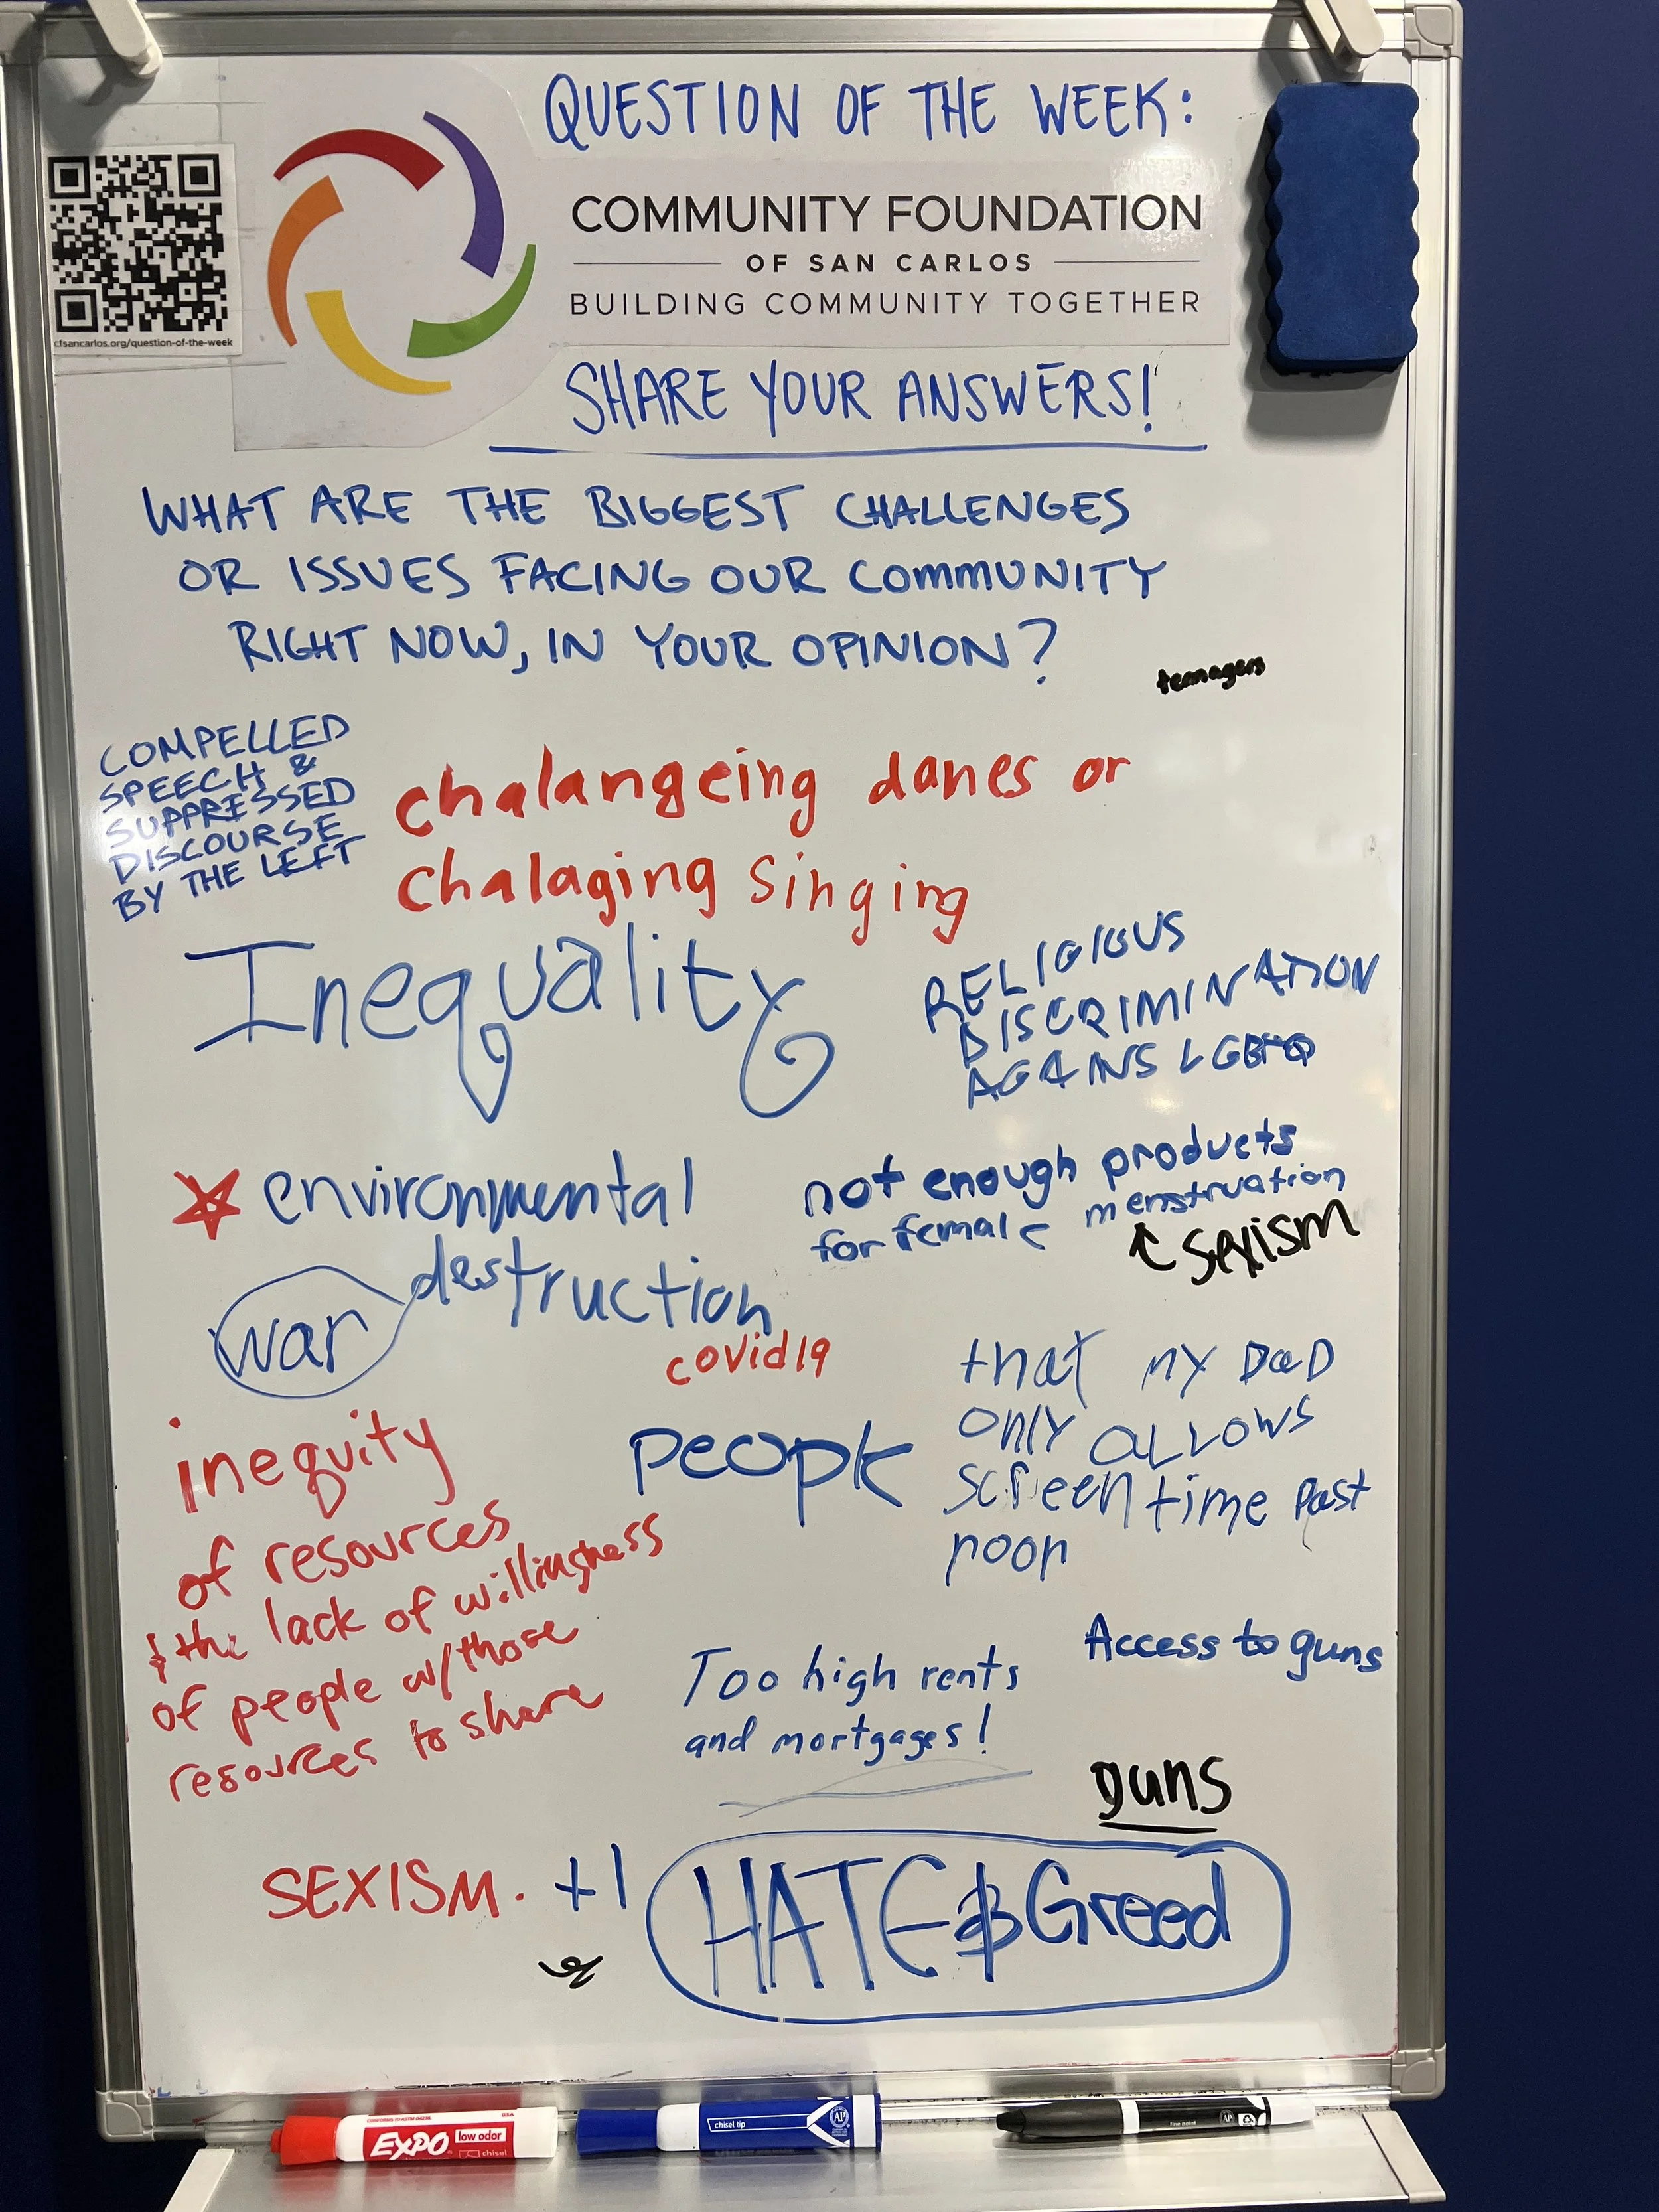 QUESTION OF THE WEEK:
COMMUNITY FOUNDATION
OF SAN CARLOS
BUILDING COMMUNITY TOGETHER
cfsancarlos.org/question-of-the-week
SHARE YOUR ANSWERS!
WHAT ARE THE BIGGEST CHALLENGES
OR ISSUES FACING OUR COMMUNITY
RIGHT NOW, IN YOUR OPINION?
teenagers
COMPELLED
SPEECH &
SUPPRESSED
DISCOURSE
BY THE LEFT
chalangeing danes or
chalaging singing
Inequality
RELIGIOUS
DISCRIMINATION
AGAINS LGBTQ
environmental
destruction
war
not enough products
for female menstruation
↑ sexism
covid19
people
that my DaD
ONLY ALLOWS
screen time past
noon
inequity
of resources
& the lack of willingness
of people w/those
resources to share
Too high rents
and mortgages!
Access to guns
guns
SEXISM. +1
HATE & Greed
EXPO
low odor
chisel
USA
chisel tip
AP
AP